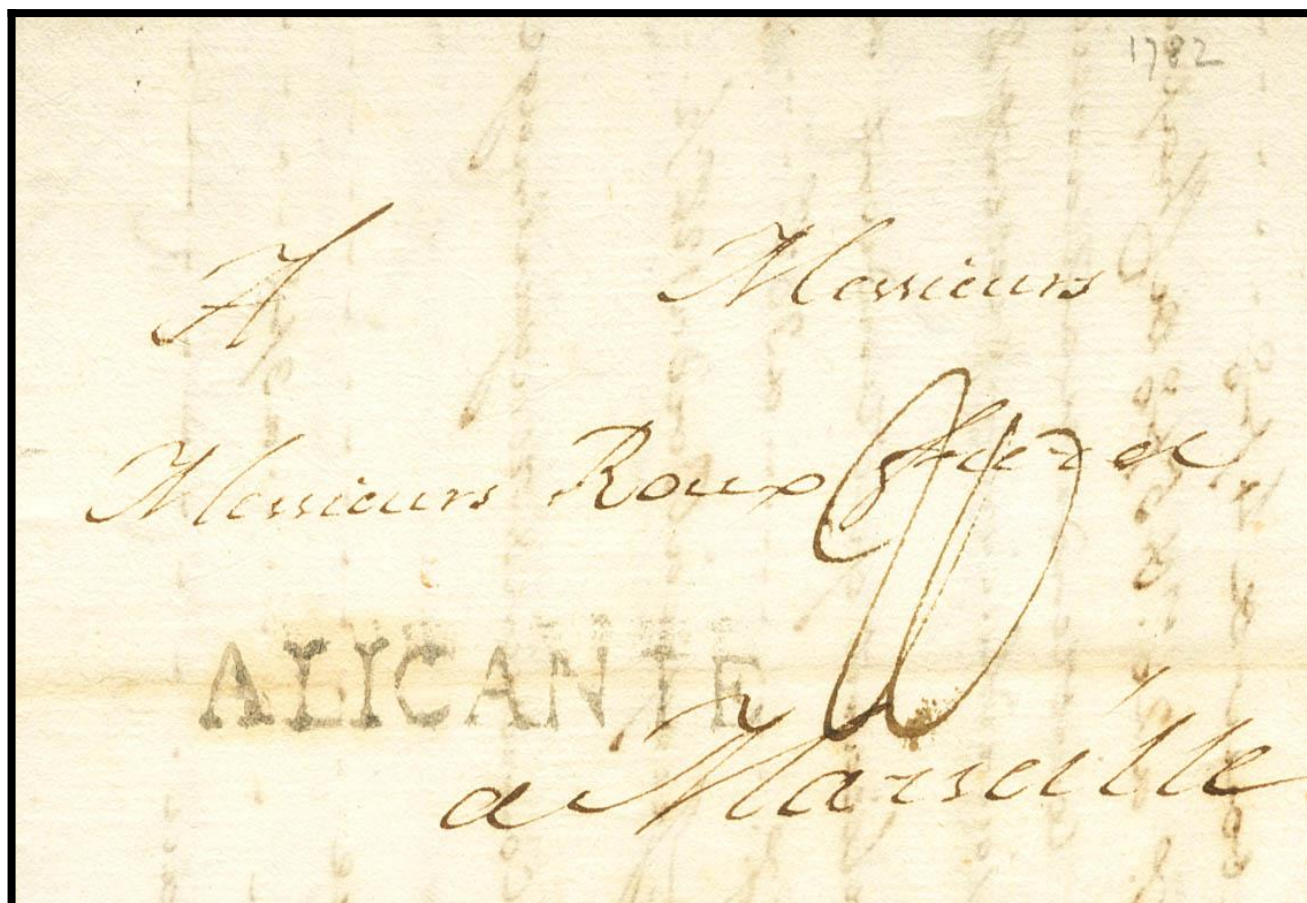 1782
A Messieurs
Messieurs Roux freres
ALICANTE
a Marseille